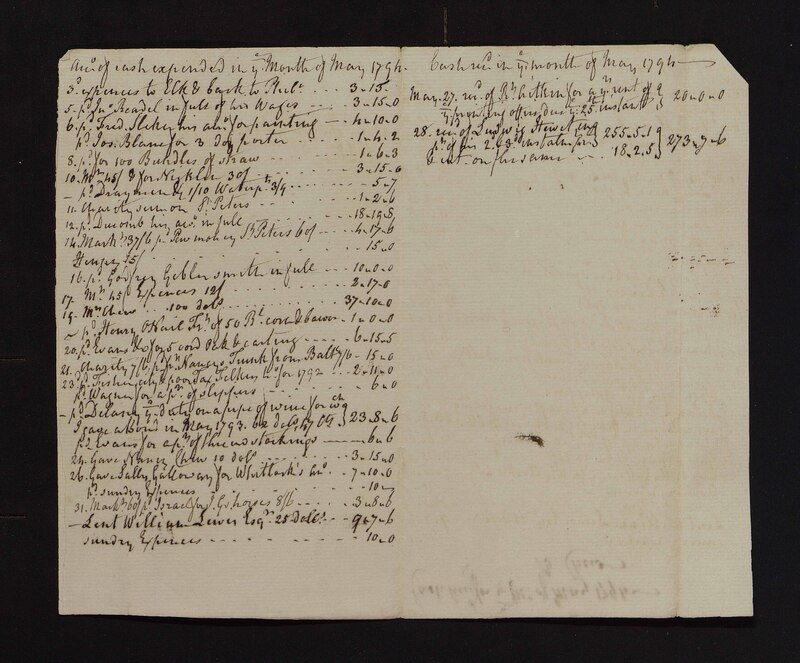 Acct. of cash expended in ye Month of May 1794
3d. expences to Elk & back to Phila. ... 3.15.
5. pd. Jno. Beadel in full of his Wages ... 3.15.0
6. pd. Fred. his acct. for painting 4.10.0
pd. Jos. Blane for 3 doz porter ... 1.4.2
8. pd. for 100 Bundles of straw ... 1.6.3
10. Mt. 45/ & for 30/ ... 3.15.0
- pd. Drayman & 1/10 3/9 ... 5.7
11. Charity sermon St. Peters ... 1.2.6
12. pd. Ducomb his acct. in full ... 18.19.5
14. Markt. 37/6 pd. Pew money St. Peters 60/ ... 4.17.6
Henry 15/ ... 15.0
16. pd. Godfrey Gebler smith in full ... 10.0.0
17. Mt. 45/ Expences 12/ ... 2.17.0
19. Mrs. Chew ... 100 dols ... 37.10.0
pd. Henry O'Neil of 50 Bt. 1.0.0
20. pd. Evans &c for 5 cord Oak & carting ... 6.15.5
21. Charity 7/6. pd. for Nancys Trunk from Balt. 7/6 15.0
23. pd. poor Tax for 1792 .. 2.11.0
pd. Wagner for a pr. of slippers ... 6.0
- pd. Delany ye duty on a pipe of wine for wch.
I gave a bond in May 1793. 62 dols 47 Cts } 23.8.6
pd. Evans for a pr. of thread stockings 6.6
24. Gave Nancy Chew 10 dols ... 3.15.0
26. Gave Sally Galloway for Whitlock's acct. . 7.10.0
pd. sundry Expences ... 10.0
31. Markt. 60/ pd. Israel for J. G. horses 8/6 ... 3.8.6
- Lent William Lewis Esqr. 25 dols. ... 9.7.6
sundry Expences ... 10.0
Cash recd. in ye month of May 1794
May. 27. recd. of Rt. Aitkin for a rent of
ending ye 25. instant } 20.0.0
28. recd. of Ludwig
pt. of his 2. & 3d. } 255.5.1
Int. on the same .. 18.2.5 } 273.7.6